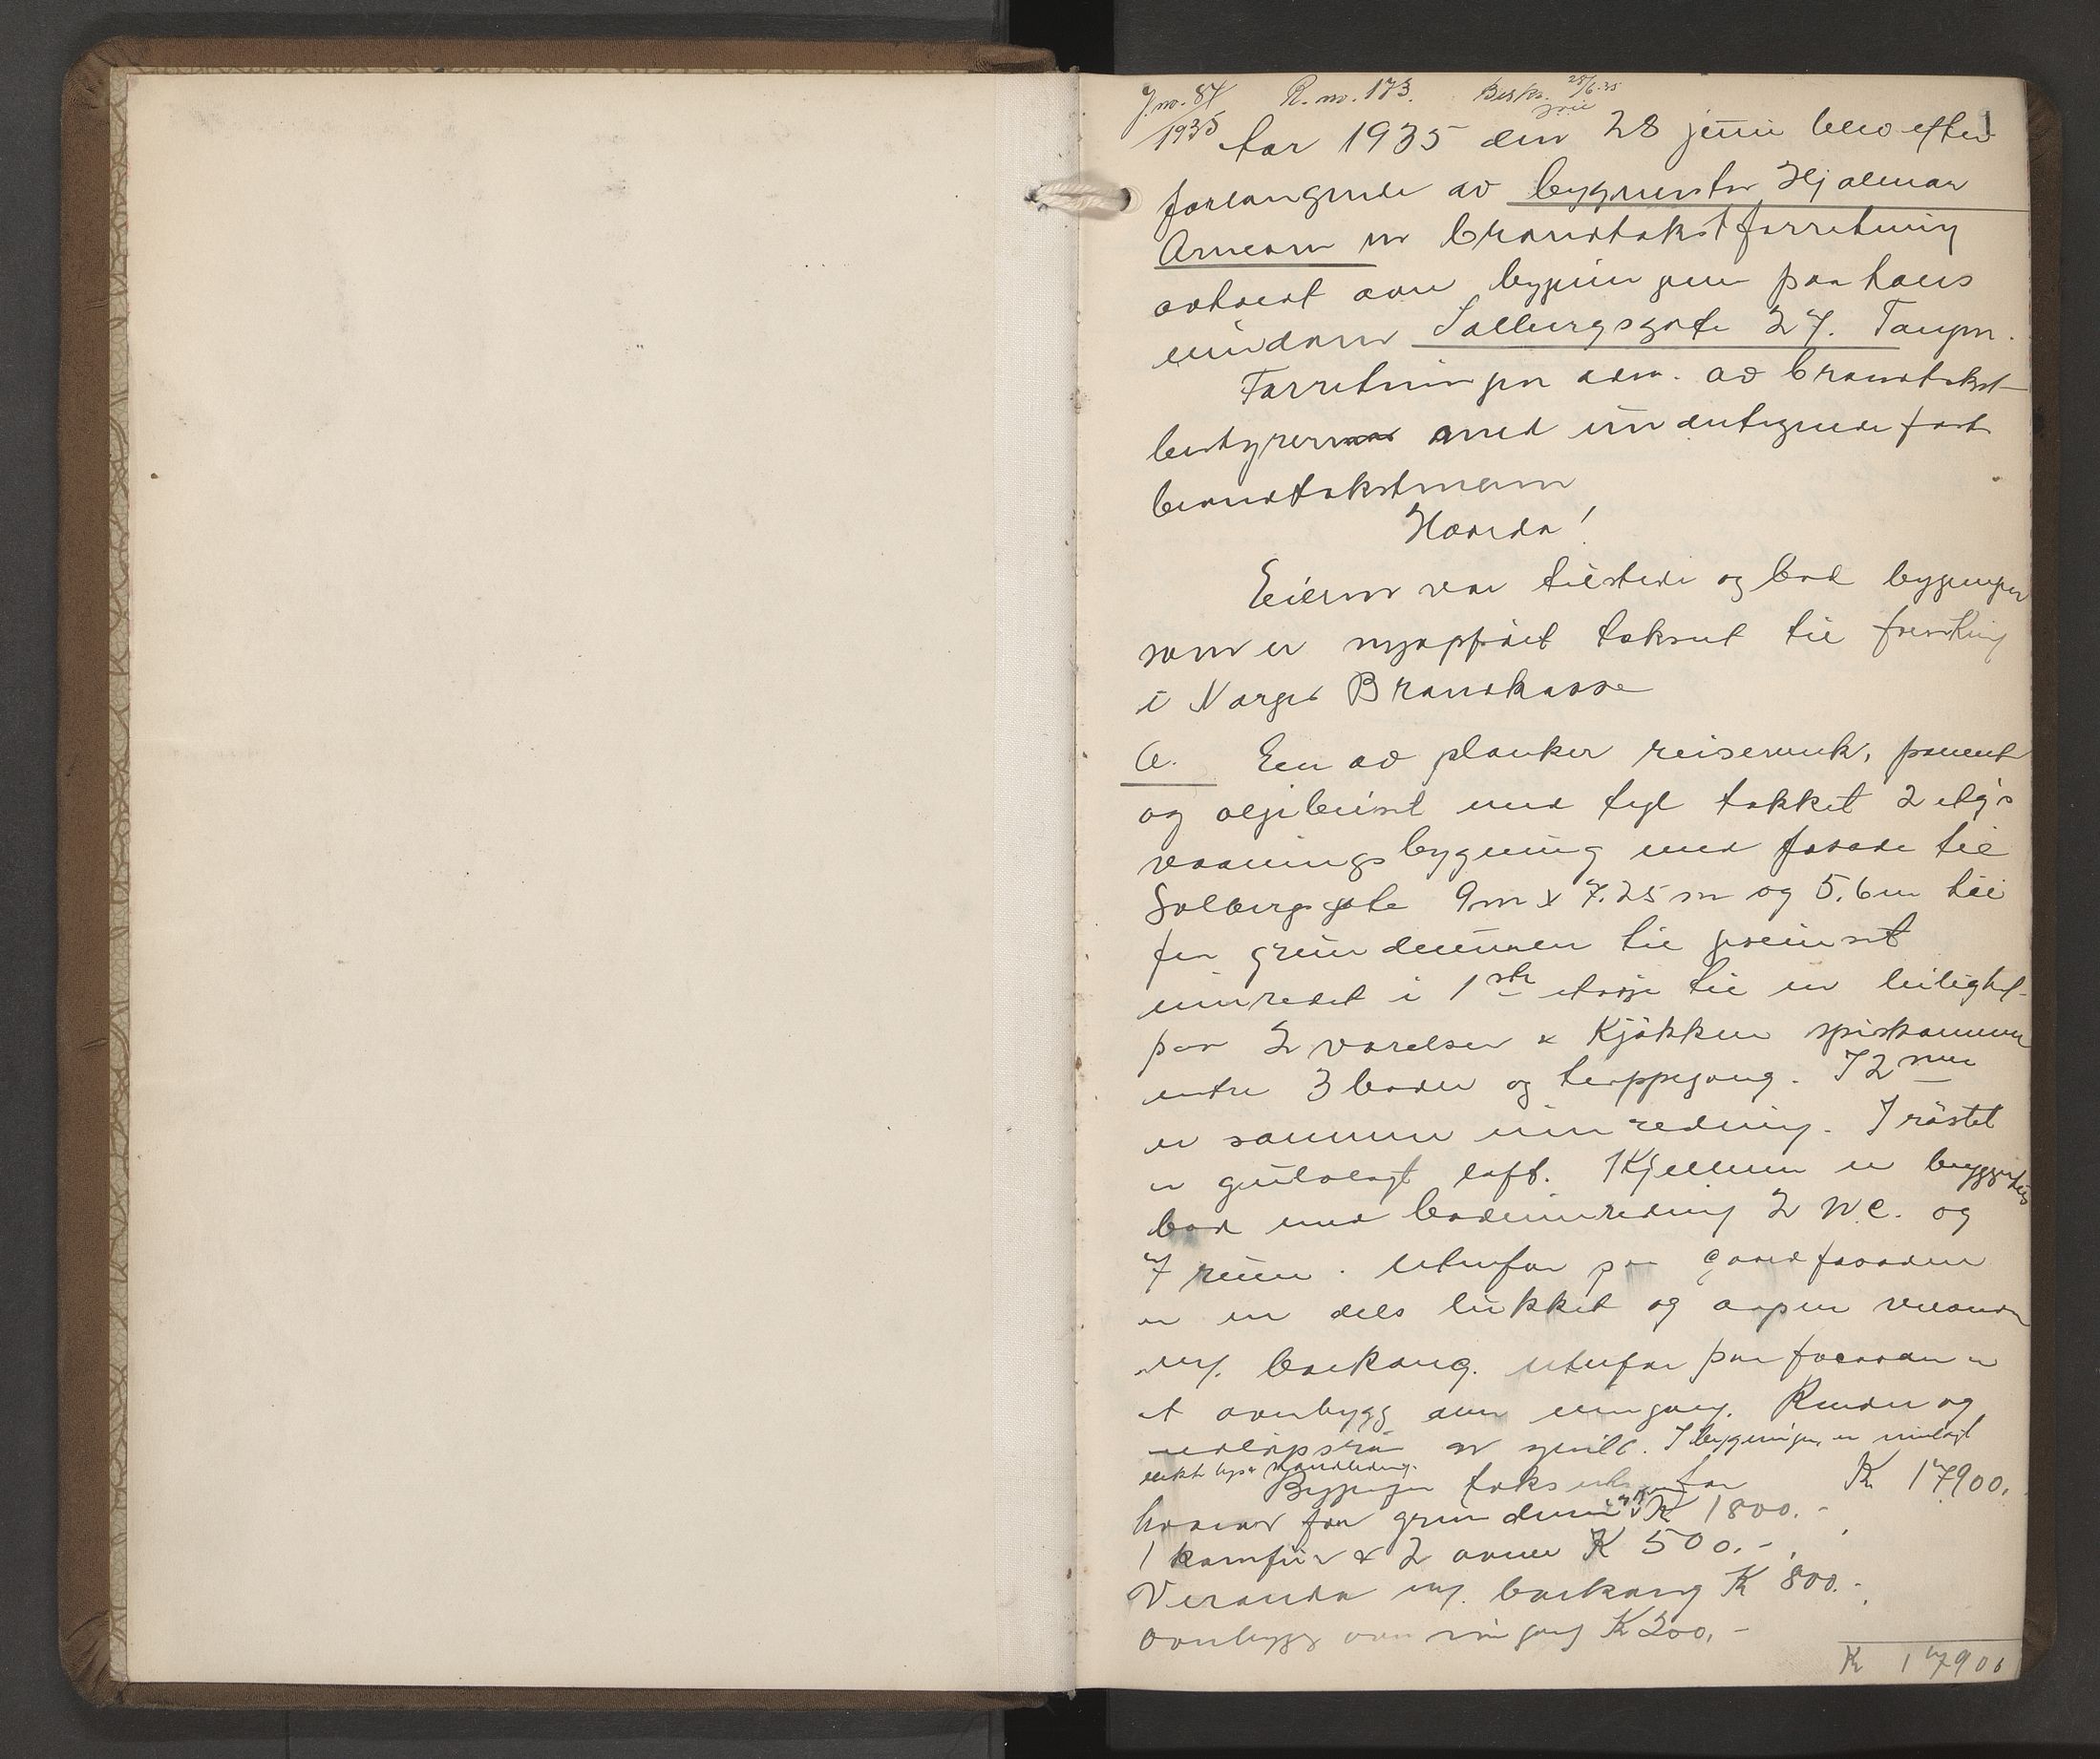 J.no. 84/1935 R.no. 173. Beskr. 28/6 35
1
Aar 1935 den 28 juni blev efter
forlangende av bygmester Hjalmar
en brandtakstforretning
avholdt over bygningen paa hans
eiendom Solbergsgate 27.
Forretningen adm. av brandtakst-
bestyreren med undertegnede fast
brandtakstmenn
Eieren var tilstede og bad bygningen
som er nyopført taksert til forsikring
i Norges Brandkasse
a. En av planker reisverk, panelt
og oljebeiset med tegl takket 2 etg's
vaaningsbygning med fasade til
Solbergsgate 9m x 7.25 m og 5.6 m høi
fra grundmuren til gesimset
innredet i 1ste etasje til en leilighet
paa 2 værelser & Kjøkken spiskammer
entre 3 boder og trappegang. I 2nen
er samme innredning. I røstet
er gulvlagt loft. Kjelleren er bryggerhus
bad med badeinnredning 2 W.C. og
7 rum. Utenfor paa gaardfasaden
er en dels lukket og aapen veranda
m/. balkong. Utenfor paa facaden er
et overbygg over inngang. Render og
nedløpsrør av zink. I bygningen er innlagt
elektr. lys &
Bygningen takseres for Kr 17900.
herav for grundmur Kr 1800.-
1 komfur & 2 ovner Kr 500.-
Veranda m/. balkong Kr 800.-
Overbygg over inngang Kr 200.-
Kr 17900